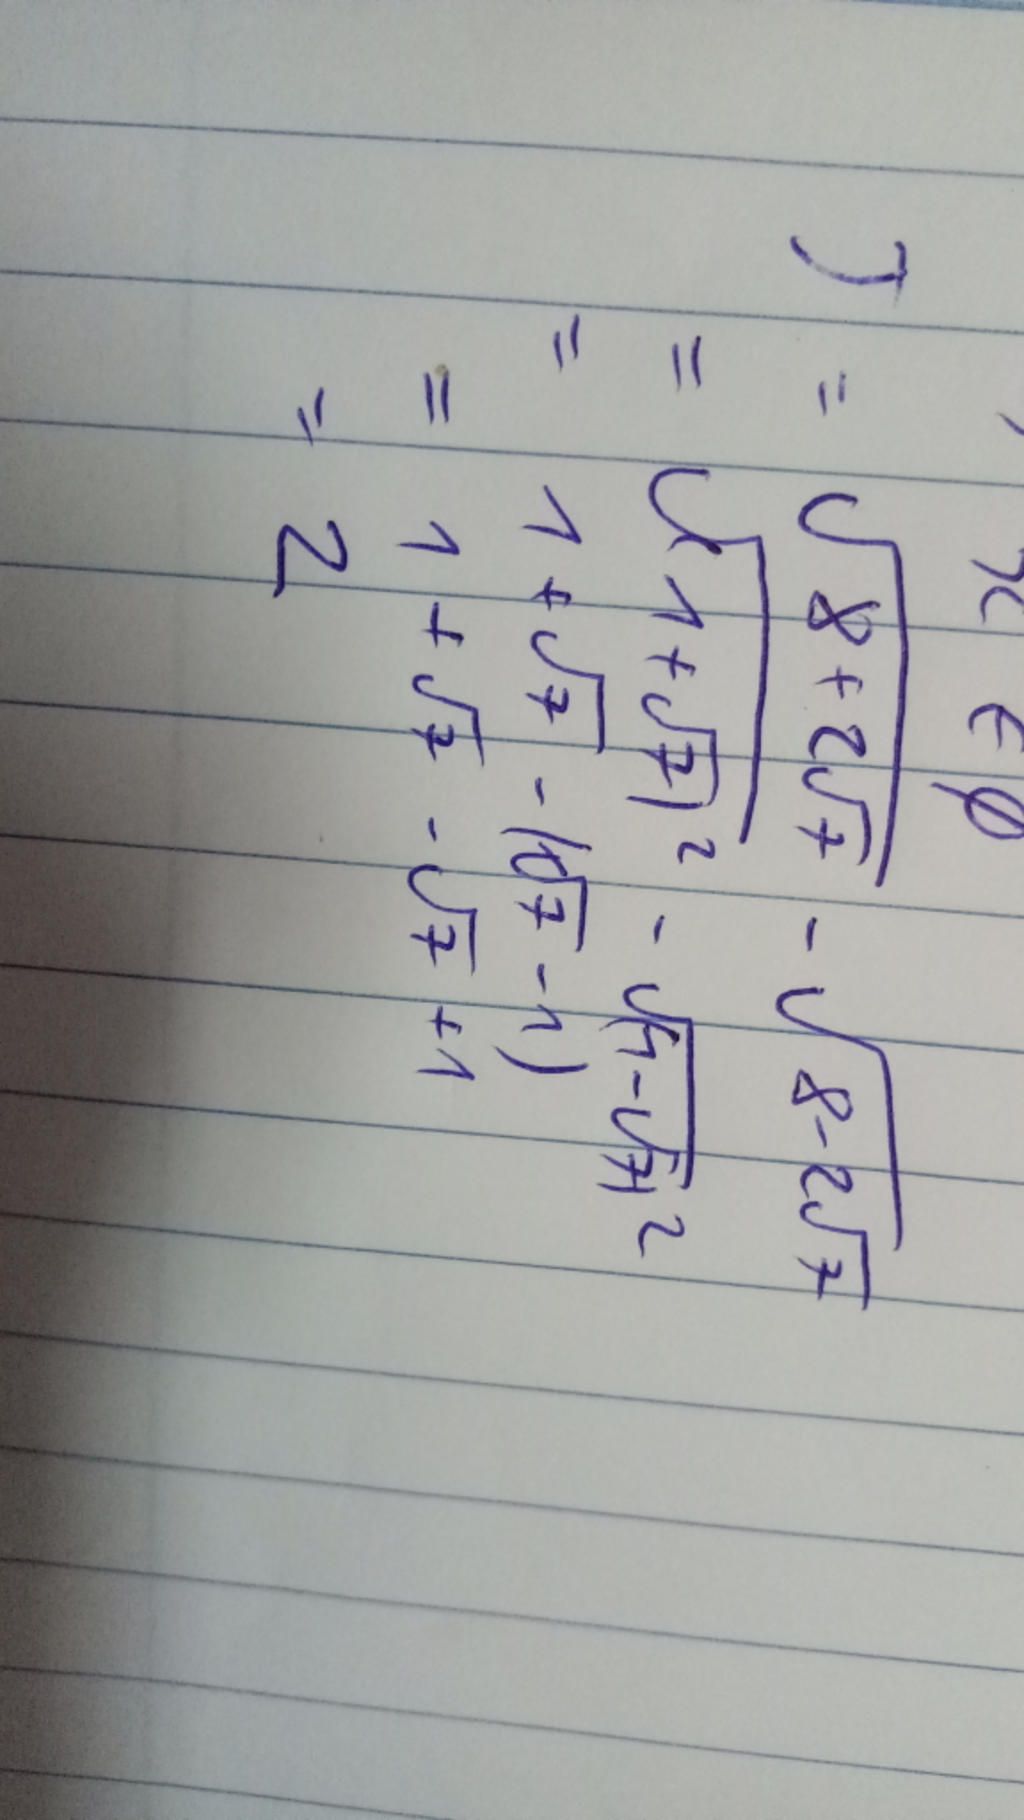 x ∈ ∅
J = √(8+2√7) - √(8-2√7)
= √(1+√7)² - √(1-√7)²
= 1+√7 - (√7-1)
= 1+√7 - √7 +1
= 2